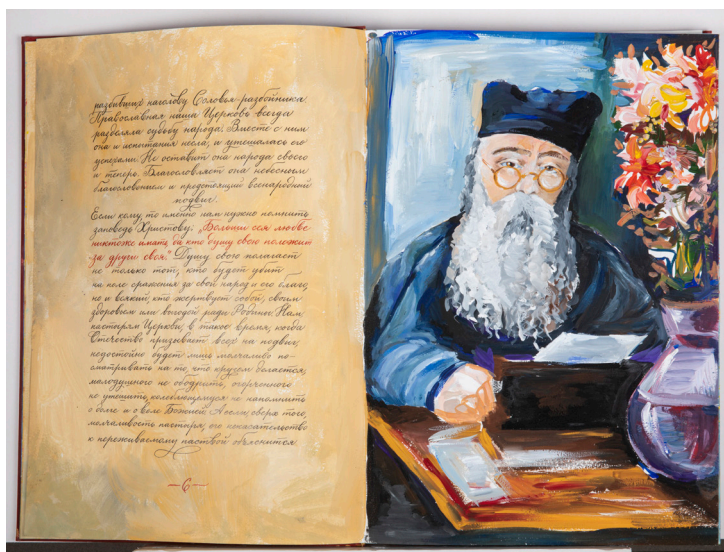 разбивших наголову Соловья-разбойника.
Православная наша Церковь всегда
разделяла судьбу народа. Вместе с ним
она и испытания несла, и утешалась его
успехами. Не оставит она народа своего
и теперь. Благословляет она небесным
благословением и предстоящий всенародный
подвиг.
Если кому, то именно нам нужно помнить
заповедь Христову: „Больши сея любве
никтоже имать, да кто душу свою положит
за други своя." Душу свою полагает
не только тот, кто будет убит
на поле сражения за свой народ и его благо,
но и всякий, кто жертвует собой, своим
здоровьем или выгодой ради Родины. Нам,
пастырям Церкви, в такое время, когда
Отечество призывает всех на подвиг,
недостойно будет лишь молчаливо по-
сматривать на то, что кругом делается,
малодушного не ободрить, огорченного
не утешить, колеблющемуся не напомнить
о долге и о воле Божией. А если, сверх того,
молчаливость пастыря, его некасательство
к переживаемому паствой объяснится
—6—